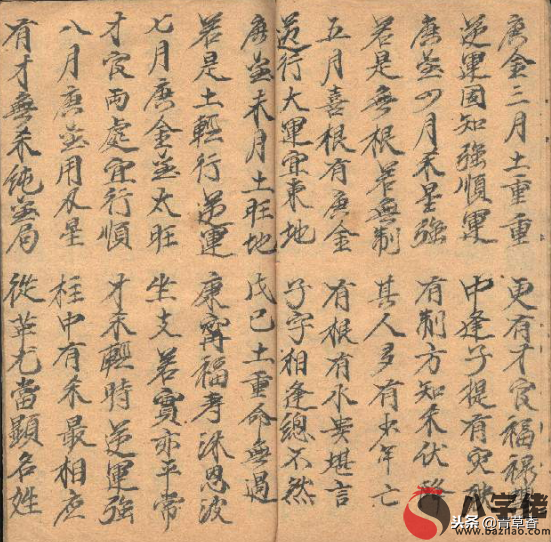 庚金三月土重重 更有才官福祿
逆運固知強順運 中逢子提有灾
庚金四月杀星強 有制方知杀伏
若是無根若無制 其人多有少年亡
五月喜根有庚金 有根有水貴堪言
逆行大運宜東地 子字相逢總不然
庚金未月土旺地 戊己土重命無過
若是土輕行逆運 康寜福考沐恩波
七月庚金金太旺 坐支若寅亦平常
才官両處宜行順 才杀輕時逆運強
八月庚金用水星 柱中有杀最相应
有才無杀純金局 從革尤當顯名姓
八字佬
www.bazilao.com
头条 @青草香